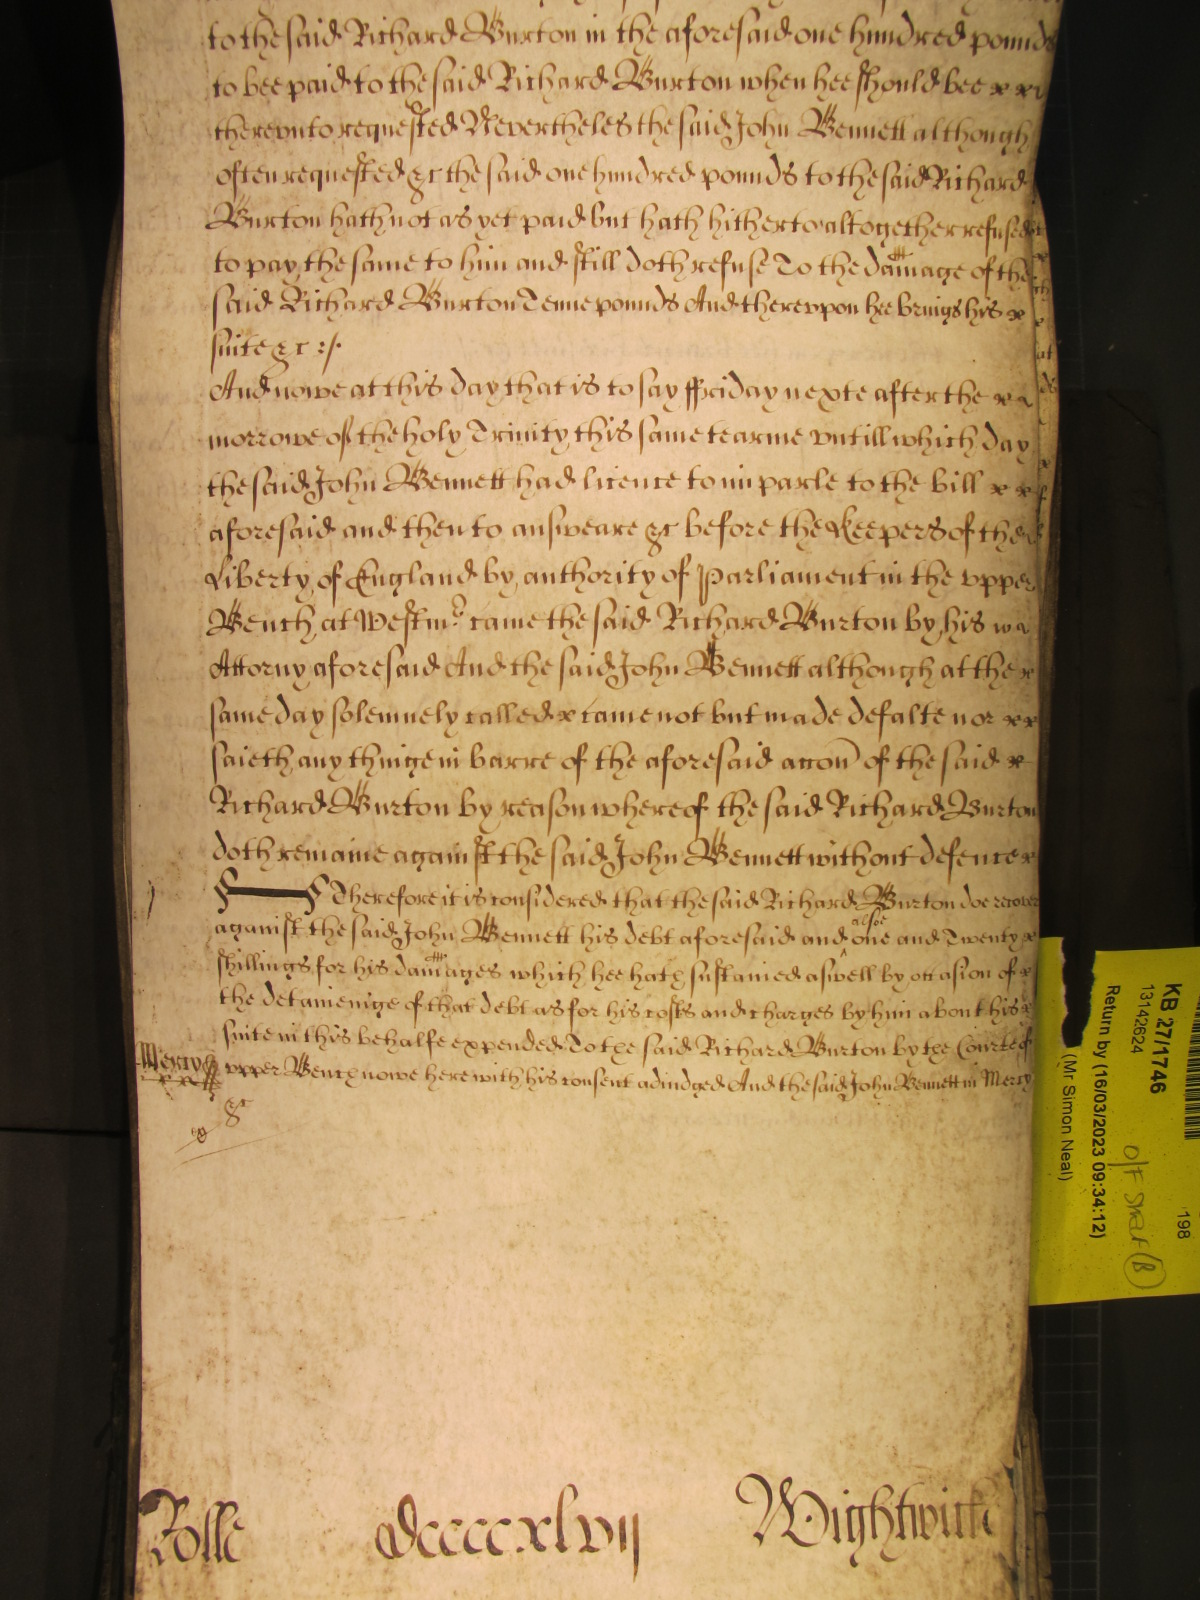 to the said Richard Burton in the aforesaid one hundred pounds
to bee paid to the said Richard Burton when hee should bee x x
therevnto requested Nevertheles the said John Bennett although
often requested &c the said one hundred pounds to the said Richard
Burton hath not as yet paid but hath hitherto altogether refused
to pay the same to him and still doth refuse To the damage of the
said Richard Burton Tenne pounds And therevpon hee brings his x
suite &c :/.
And nowe at this day that is to say ffriday nexte after the x
morrowe of the holy Trinity this same tearme vntill which day
the said John Bennett had licence to imparle to the bill x x
aforesaid and then to answeare &c before the Keepers of the
Liberty of England by authority of Parliament in the vpper
Bench at Westmr came the said Richard Burton by his
Attorny aforesaid And the said John Bennett although at the x
same day solemnely called x came not but made defalte nor x x
saieth any thinge in barre of the aforesaid accon of the said x
Richard Burton by reason whereof the said Richard Burton
doth remaine against the said John Bennett without defence x
Therefore it is considered that the said Richard Burton doe recover
against the said John Bennett his debt aforesaid and alsoe one and Twenty x
shillings for his damages which hee hath sustained aswell by occasion of x
the detaieninge of that debt as for his costs and charges by him about his x
suite in this behalfe expended To the said Richard Burton by the Courte of
Mercy
vpper Bench nowe here with his consent adiudged And the said John Bennett in Mercy
&c
Rolle dccccxlvij Wightwick
KB 27/1746
13142624
198
Return by (16/03/2023 09:34:12)
(Mr Simon Neal)
O/F Smar (B)